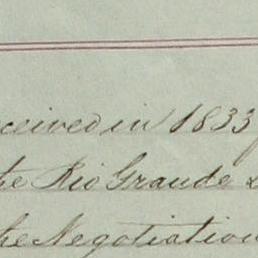 ceived in 1833
the Rio Grande &
the Negotiation